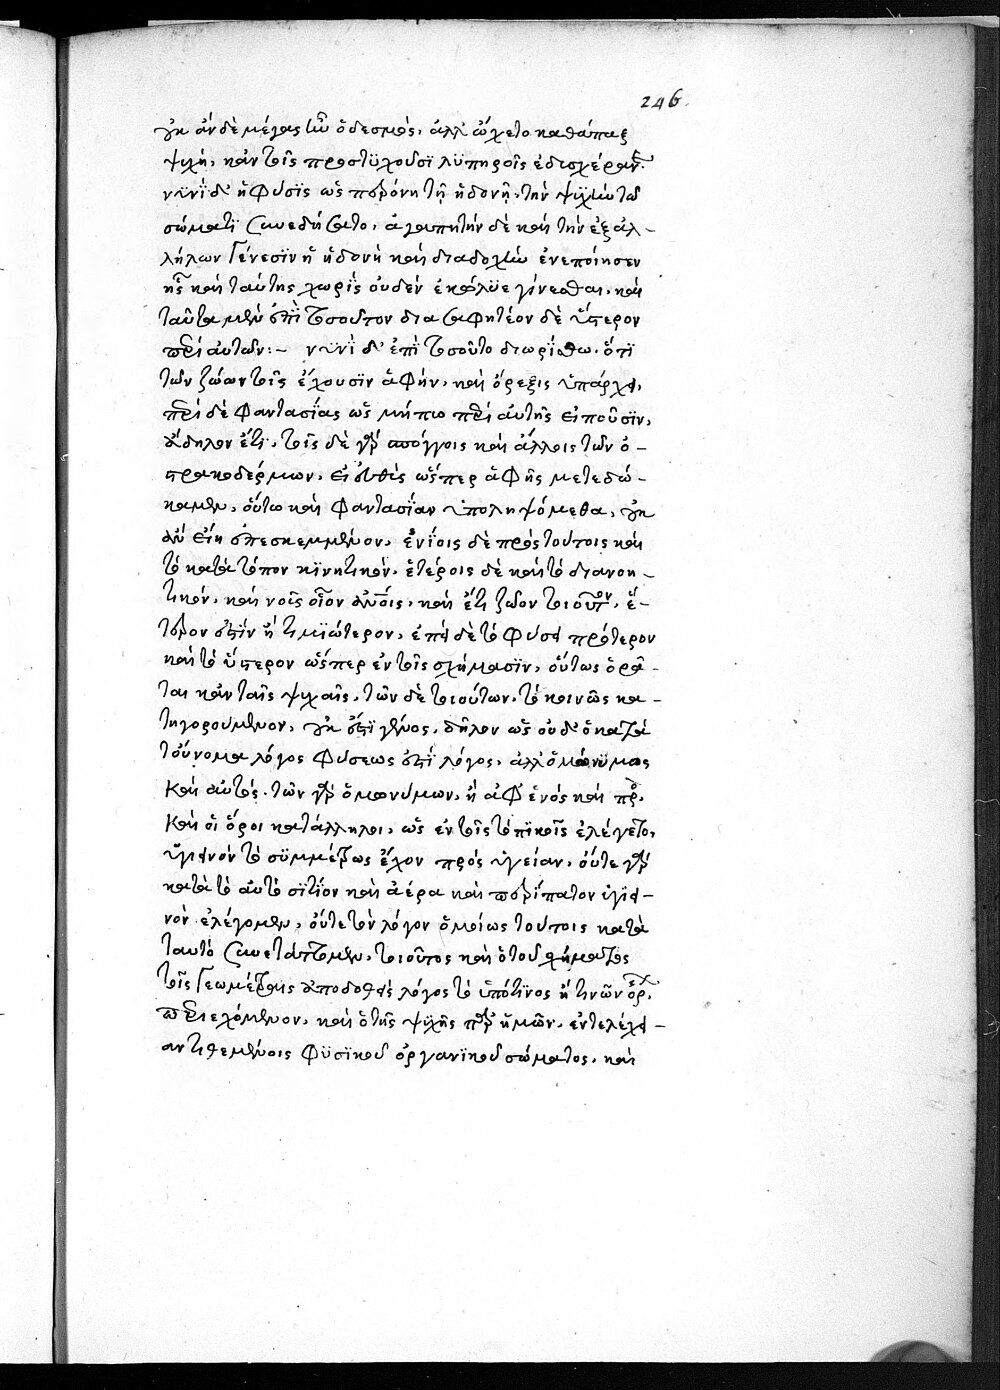 246
οὐκ ἂν δὲ μέγας ἦν ὁ δεσμός, ἀλλ' ᾤχετο καθάπαξ
ψυχή, κἂν τοῖς προστυχοῦσι λυπηροῖς ἐδυσχέραν
νυνὶ δ' ἡ φύσις ὡς περόνῃ τῇ ἡδονῇ, τὴν ψυχὴν τῷ
σώματι συνεδήσατο, ἀγαπητὴν δὲ καὶ τὴν ἐξ ἀλ-
λήλων γένεσιν ἡ ἡδονὴ καὶ διαδοχὴν ἐνεποίησεν
ἧς καὶ ταύτης χωρὶς οὐδὲν ἐκώλυε γίνεσθαι, καὶ
ταῦτα μὲν ἐπὶ τοσοῦτον διασαφητέον δὲ ὕστερον
περὶ αὐτῶν:- νυνὶ δ' ἐπὶ τοσοῦτο διωρίσθω, ὅτι
τῶν ζώων τοῖς ἔχουσιν ἁφήν, καὶ ὄρεξις ὑπάρχει,
περὶ δὲ φαντασίας ὡς μήπω περὶ αὐτῆς εἰποῦσιν,
ἄδηλον ἔτι, τοῖς δὲ γὰρ σπόγγοις καὶ ἄλλοις τῶν ὀ-
στρακοδέρμων, εἰ εὐθὺς ὥσπερ ἁφῆς μετεδώ-
καμεν, οὕτω καὶ φαντασίαν ὑποληψόμεθα, οὐκ
ἂν εἴη ἐπεσκεμμένον, ἐνίοις δὲ πρὸς τούτοις καὶ
τὸ κατὰ τόπον κινητικόν, ἑτέροις δὲ καὶ τὸ διανοη-
τικόν, καὶ νοῖς οἷον ἀνοις, καὶ ἔτι ζῶον τοιοῦτον, ἕ-
τερον ἐστὶν ἢ τιμιώτερον, ἐπεὶ δὲ τὸ φύσει πρότερον
καὶ τὸ ὕστερον ὥσπερ ἐν τοῖς σχήμασιν, οὕτως ὁρᾶ-
ται κἂν ταῖς ψυχαῖς, τῶν δὲ τοιούτων, τὸ κοινῶς κα-
τηγορούμενον, οὐκ ἔστι γένος, δῆλον ὡς οὐδ' ὁ κατὰ
τοὔνομα λόγος φύσεως ἐστὶ λόγος, ἀλλ' ὁμώνυμος
καὶ αὐτός, τῶν γὰρ ὁμωνύμων, ἢ ἀφ' ἑνὸς καὶ πρ,
καὶ οἱ ὅροι κατάλληλοι, ὡς ἐν τοῖς τοπικοῖς ἐλέγετο,
ὑγιεινὸν τὸ συμμέτρως ἔχον πρὸς ὑγείαν, οὔτε γὰρ
κατὰ τὸ αὐτὸ σιτίον καὶ ἀέρα καὶ περίπατον ὑγιει-
νὸν ἐλέγομεν, οὔτε τὸν λόγον ὁμοίως τούτοις κατὰ
ταυτὸ συνετάττομεν, τοιοῦτος καὶ ὁ τοῦ σχήματος
τοῖς γεωμέτραις ἀποδοθεὶς λόγος τὸ ὑπό τινος ἤ τινων ὅρ.
περιεχόμενον, καὶ ὁ τῆς ψυχῆς παρ' ἡμῶν, ἐντελέχει-
αν τιθεμένοις φυσικοῦ ὀργανικοῦ σώματος, καὶ